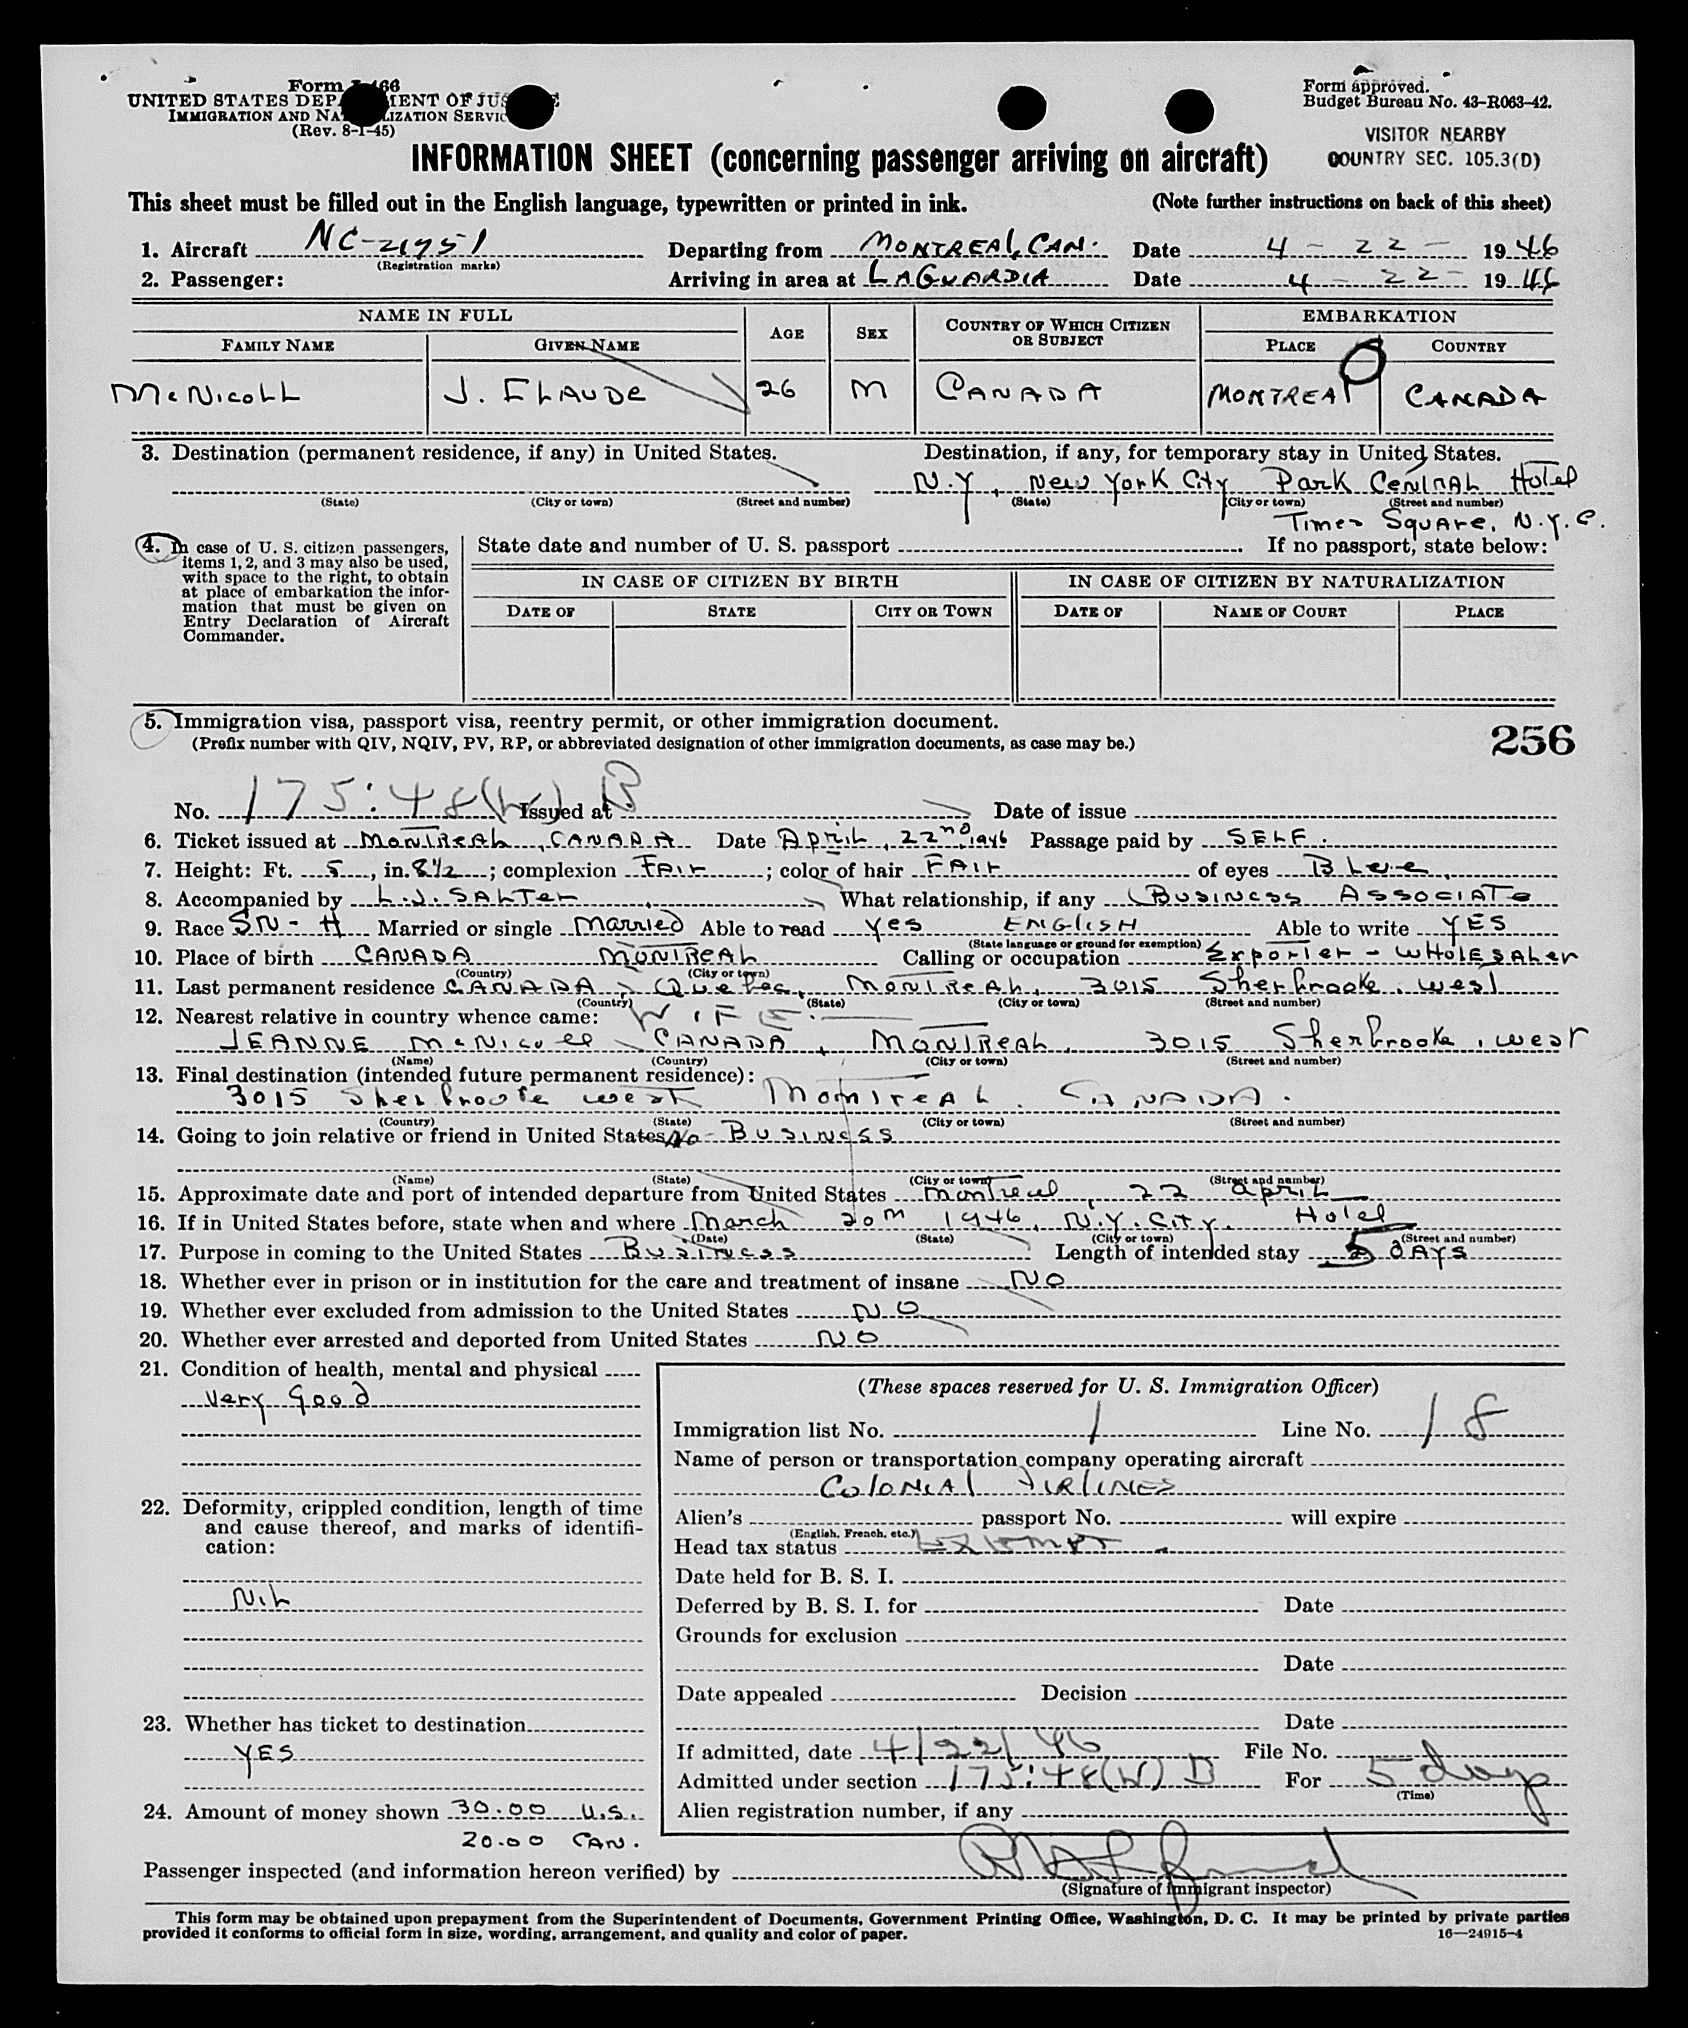 Form I-466
UNITED STATES DEPARTMENT OF JUSTICE
IMMIGRATION AND NATURALIZATION SERVICE
(Rev. 8-1-45)
Form approved.
Budget Bureau No. 43-R063-42.
VISITOR NEARBY
COUNTRY SEC. 105.3(D)
INFORMATION SHEET (concerning passenger arriving on aircraft)
This sheet must be filled out in the English language, typewritten or printed in ink. (Note further instructions on back of this sheet)
1. Aircraft NC-21951 Departing from MONTREAL, CAN. Date 4-22- 1946
(Registration marks)
2. Passenger: Arriving in area at LAGUARDIA Date 4-22- 1946
NAME IN FULL AGE SEX COUNTRY OF WHICH CITIZEN OR SUBJECT EMBARKATION
FAMILY NAME GIVEN NAME PLACE COUNTRY
McNicoLL J. CLAUDE 26 M CANADA MONTREAL CANADA
3. Destination (permanent residence, if any) in United States. Destination, if any, for temporary stay in United States.
N.Y., New York City Park CENTRAL Hotel
(State) (City or town) (Street and number) (State) (City or town) (Street and number)
Times Square, N.Y.C.
4. In case of U. S. citizen passengers, items 1, 2, and 3 may also be used, with space to the right, to obtain at place of embarkation the information that must be given on Entry Declaration of Aircraft Commander.
State date and number of U. S. passport If no passport, state below:
IN CASE OF CITIZEN BY BIRTH IN CASE OF CITIZEN BY NATURALIZATION
DATE OF STATE CITY OR TOWN DATE OF NAME OF COURT PLACE
5. Immigration visa, passport visa, reentry permit, or other immigration document.
(Prefix number with QIV, NQIV, PV, RP, or abbreviated designation of other immigration documents, as case may be.)
256
No. 175:48(W) B Issued at Date of issue
6. Ticket issued at MONTREAL, CANADA Date April, 22nd, 1946 Passage paid by SELF.
7. Height: Ft. 5, in. 8½; complexion FAIR; color of hair FAIR of eyes Blue,
8. Accompanied by L.J. SALTER What relationship, if any Business Associate
9. Race Married or single Married Able to read Yes ENGLISH Able to write YES
(State language or ground for exemption)
10. Place of birth CANADA MONTREAL Calling or occupation Exporter - WHOLESALER
(Country) (City or town)
11. Last permanent residence CANADA, Quebec, MONTREAL, 3015 Sherbrooke, west
(Country) (State) (City or town) (Street and number)
12. Nearest relative in country whence came: WIFE.
JEANNE McNicoll CANADA, MONTREAL, 3015 Sherbrooke, west
(Name) (Country) (City or town) (Street and number)
13. Final destination (intended future permanent residence):
3015 Sherbrooke west Montreal. CANADA.
(Country) (State) (City or town) (Street and number)
14. Going to join relative or friend in United States No - BUSINESS
(Name) (State) (City or town) (Street and number)
15. Approximate date and port of intended departure from United States Montreal, 22 April
16. If in United States before, state when and where March 20th 1946, N.Y. City. Hotel
(Date) (State) (City or town) (Street and number)
17. Purpose in coming to the United States Business Length of intended stay 5 DAYS
18. Whether ever in prison or in institution for the care and treatment of insane NO
19. Whether ever excluded from admission to the United States NO
20. Whether ever arrested and deported from United States NO
21. Condition of health, mental and physical
Very Good
22. Deformity, crippled condition, length of time and cause thereof, and marks of identification:
NiL
23. Whether has ticket to destination
YES
24. Amount of money shown 30.00 U.S.
20.00 CAN.
(These spaces reserved for U. S. Immigration Officer)
Immigration list No. 1 Line No. 18
Name of person or transportation company operating aircraft
COLONIAL AIRLINES
Alien's passport No. will expire
(English, French, etc.)
Head tax status Exempt
Date held for B. S. I.
Deferred by B. S. I. for Date
Grounds for exclusion
Date
Date appealed Decision
Date
If admitted, date 4/22/46 File No.
Admitted under section 175:48(W) B For 5 days
(Time)
Alien registration number, if any
Passenger inspected (and information hereon verified) by
(Signature of immigrant inspector)
This form may be obtained upon prepayment from the Superintendent of Documents, Government Printing Office, Washington, D. C. It may be printed by private parties
provided it conforms to official form in size, wording, arrangement, and quality and color of paper.
16—24915-4